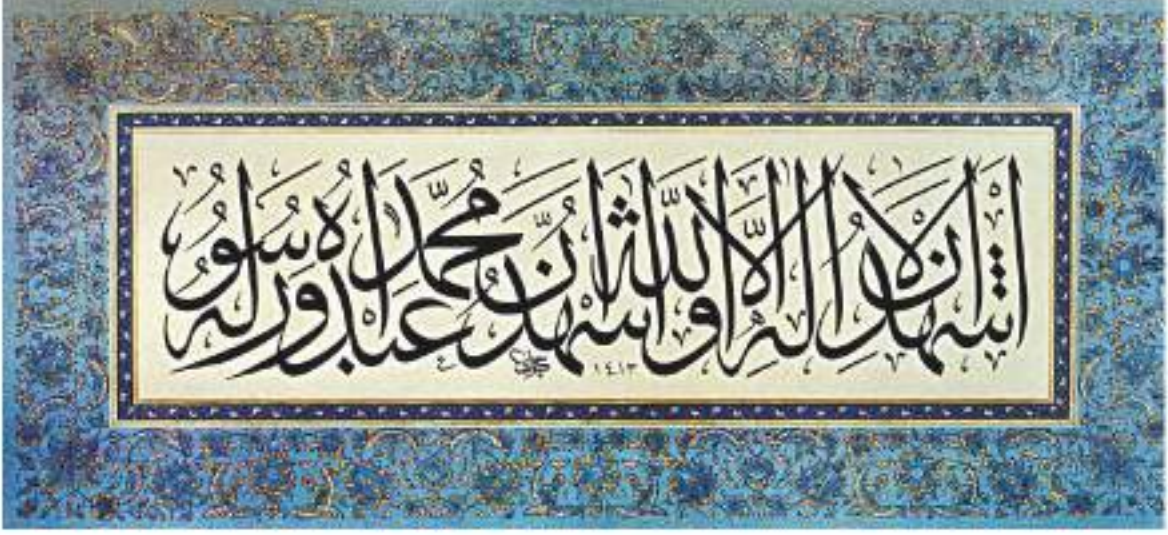 اَشْهَدُ اَنْ لَا اِلٰهَ اِلَّا اللّٰهُ وَاَشْهَدُ اَنَّ مُحَمَّدًا عَبْدُهُ وَرَسُولُهُ
١٤١٣